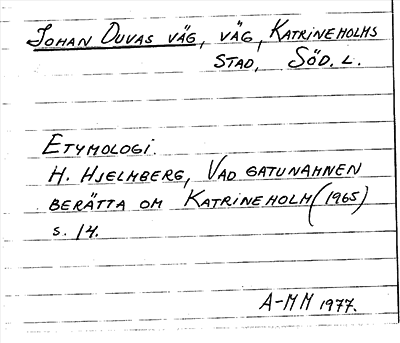 Johan Duvas väg, väg, Katrineholms
stad, Söd. L.
Etymologi.
H. Hjelmberg, Vad gatunamnen
berätta om Katrineholm (1965)
s. 14.
A-MM 1977.